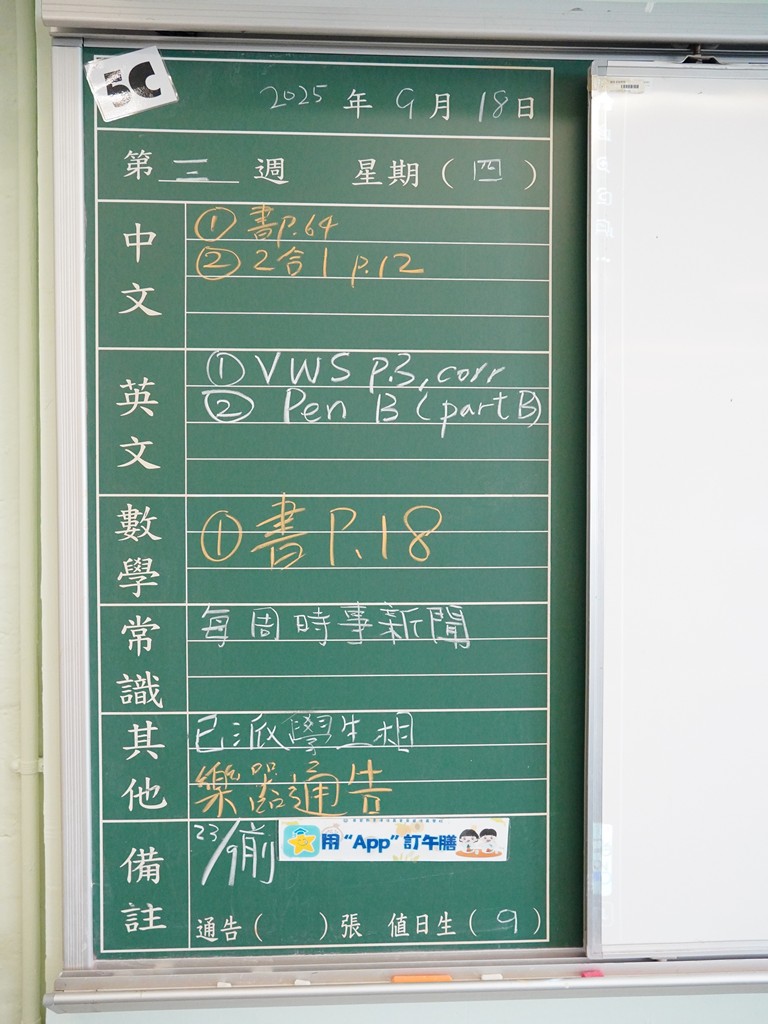 5C
2025 年 9 月 18 日
第 三 週 星期 ( 四 )
中文
① 書P.64
② 2合1 p.12
英文
① VWS P.3, corr
② Pen B (part B)
數學
① 書P.18
常識
每周時事新聞
其他
已派學生相
樂器通告
備註
23/9前
用“App”訂午膳
通告 ( ) 張 值日生 ( 9 )